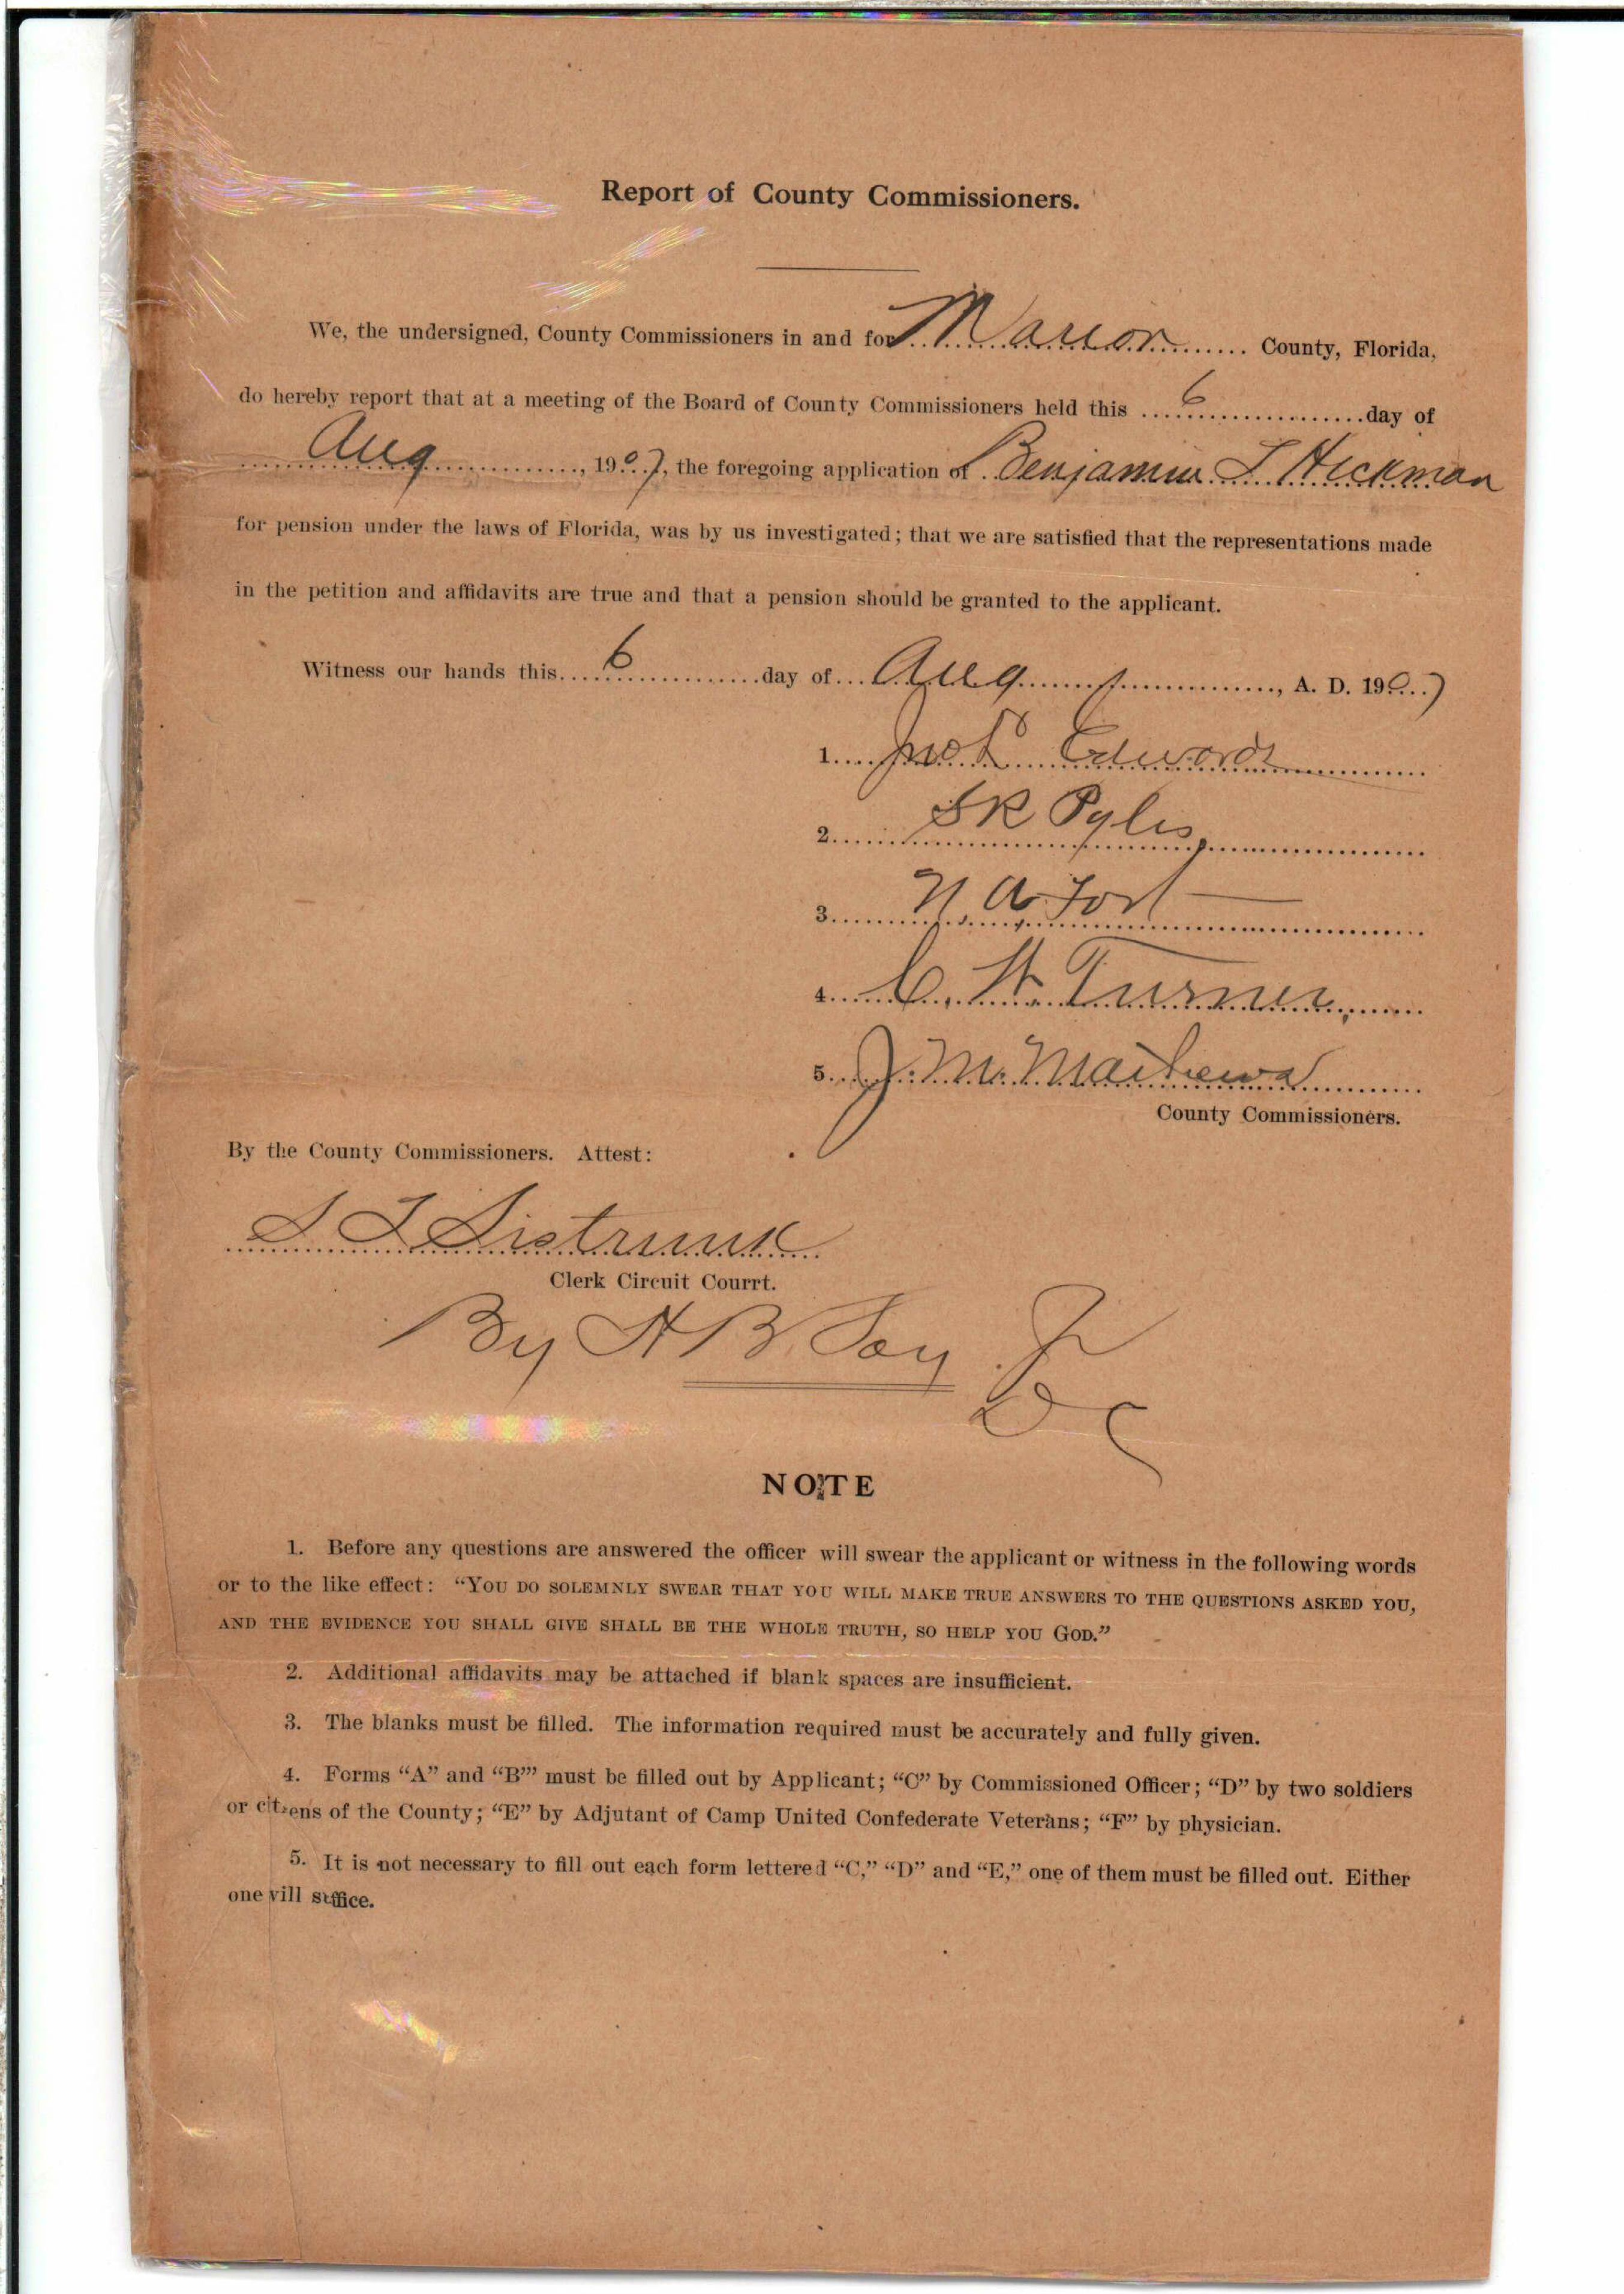 Report of County Commissioners.
We, the undersigned, County Commissioners in and for Marion County, Florida,
do hereby report that at a meeting of the Board of County Commissioners held this 6 day of
Aug, 1907, the foregoing application of Benjamin T. Hickman
for pension under the laws of Florida, was by us investigated; that we are satisfied that the representations made
in the petition and affidavits are true and that a pension should be granted to the applicant.
Witness our hands this 6 day of Aug, A. D. 1907
1. Jno L Edwards
2. S R Pyles
3. N A Fort
4. C. H. Turner
5. J. M. Mathews
County Commissioners.
By the County Commissioners. Attest:
S T Sistrunk
Clerk Circuit Courrt.
By H B
DC
NOTE
1. Before any questions are answered the officer will swear the applicant or witness in the following words
or to the like effect: "YOU DO SOLEMNLY SWEAR THAT YOU WILL MAKE TRUE ANSWERS TO THE QUESTIONS ASKED YOU,
AND THE EVIDENCE YOU SHALL GIVE SHALL BE THE WHOLE TRUTH, SO HELP YOU GOD."
2. Additional affidavits may be attached if blank spaces are insufficient.
3. The blanks must be filled. The information required must be accurately and fully given.
4. Forms "A" and "B"' must be filled out by Applicant; "C" by Commissioned Officer; "D" by two soldiers
or citzens of the County; "E" by Adjutant of Camp United Confederate Veterans; "F" by physician.
5. It is not necessary to fill out each form lettered "C," "D" and "E," one of them must be filled out. Either
one will suffice.